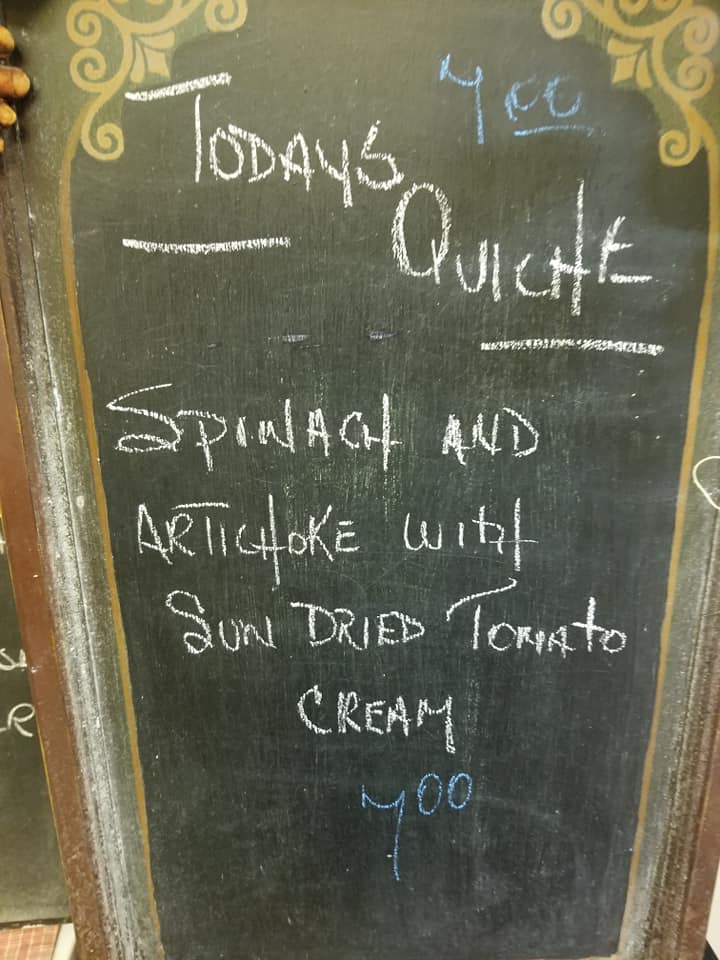 7 00
TODAYS
QUICHE
SPINACH AND
ARTICHOKE WITH
SUN DRIED TOMATO
CREAM
7 00